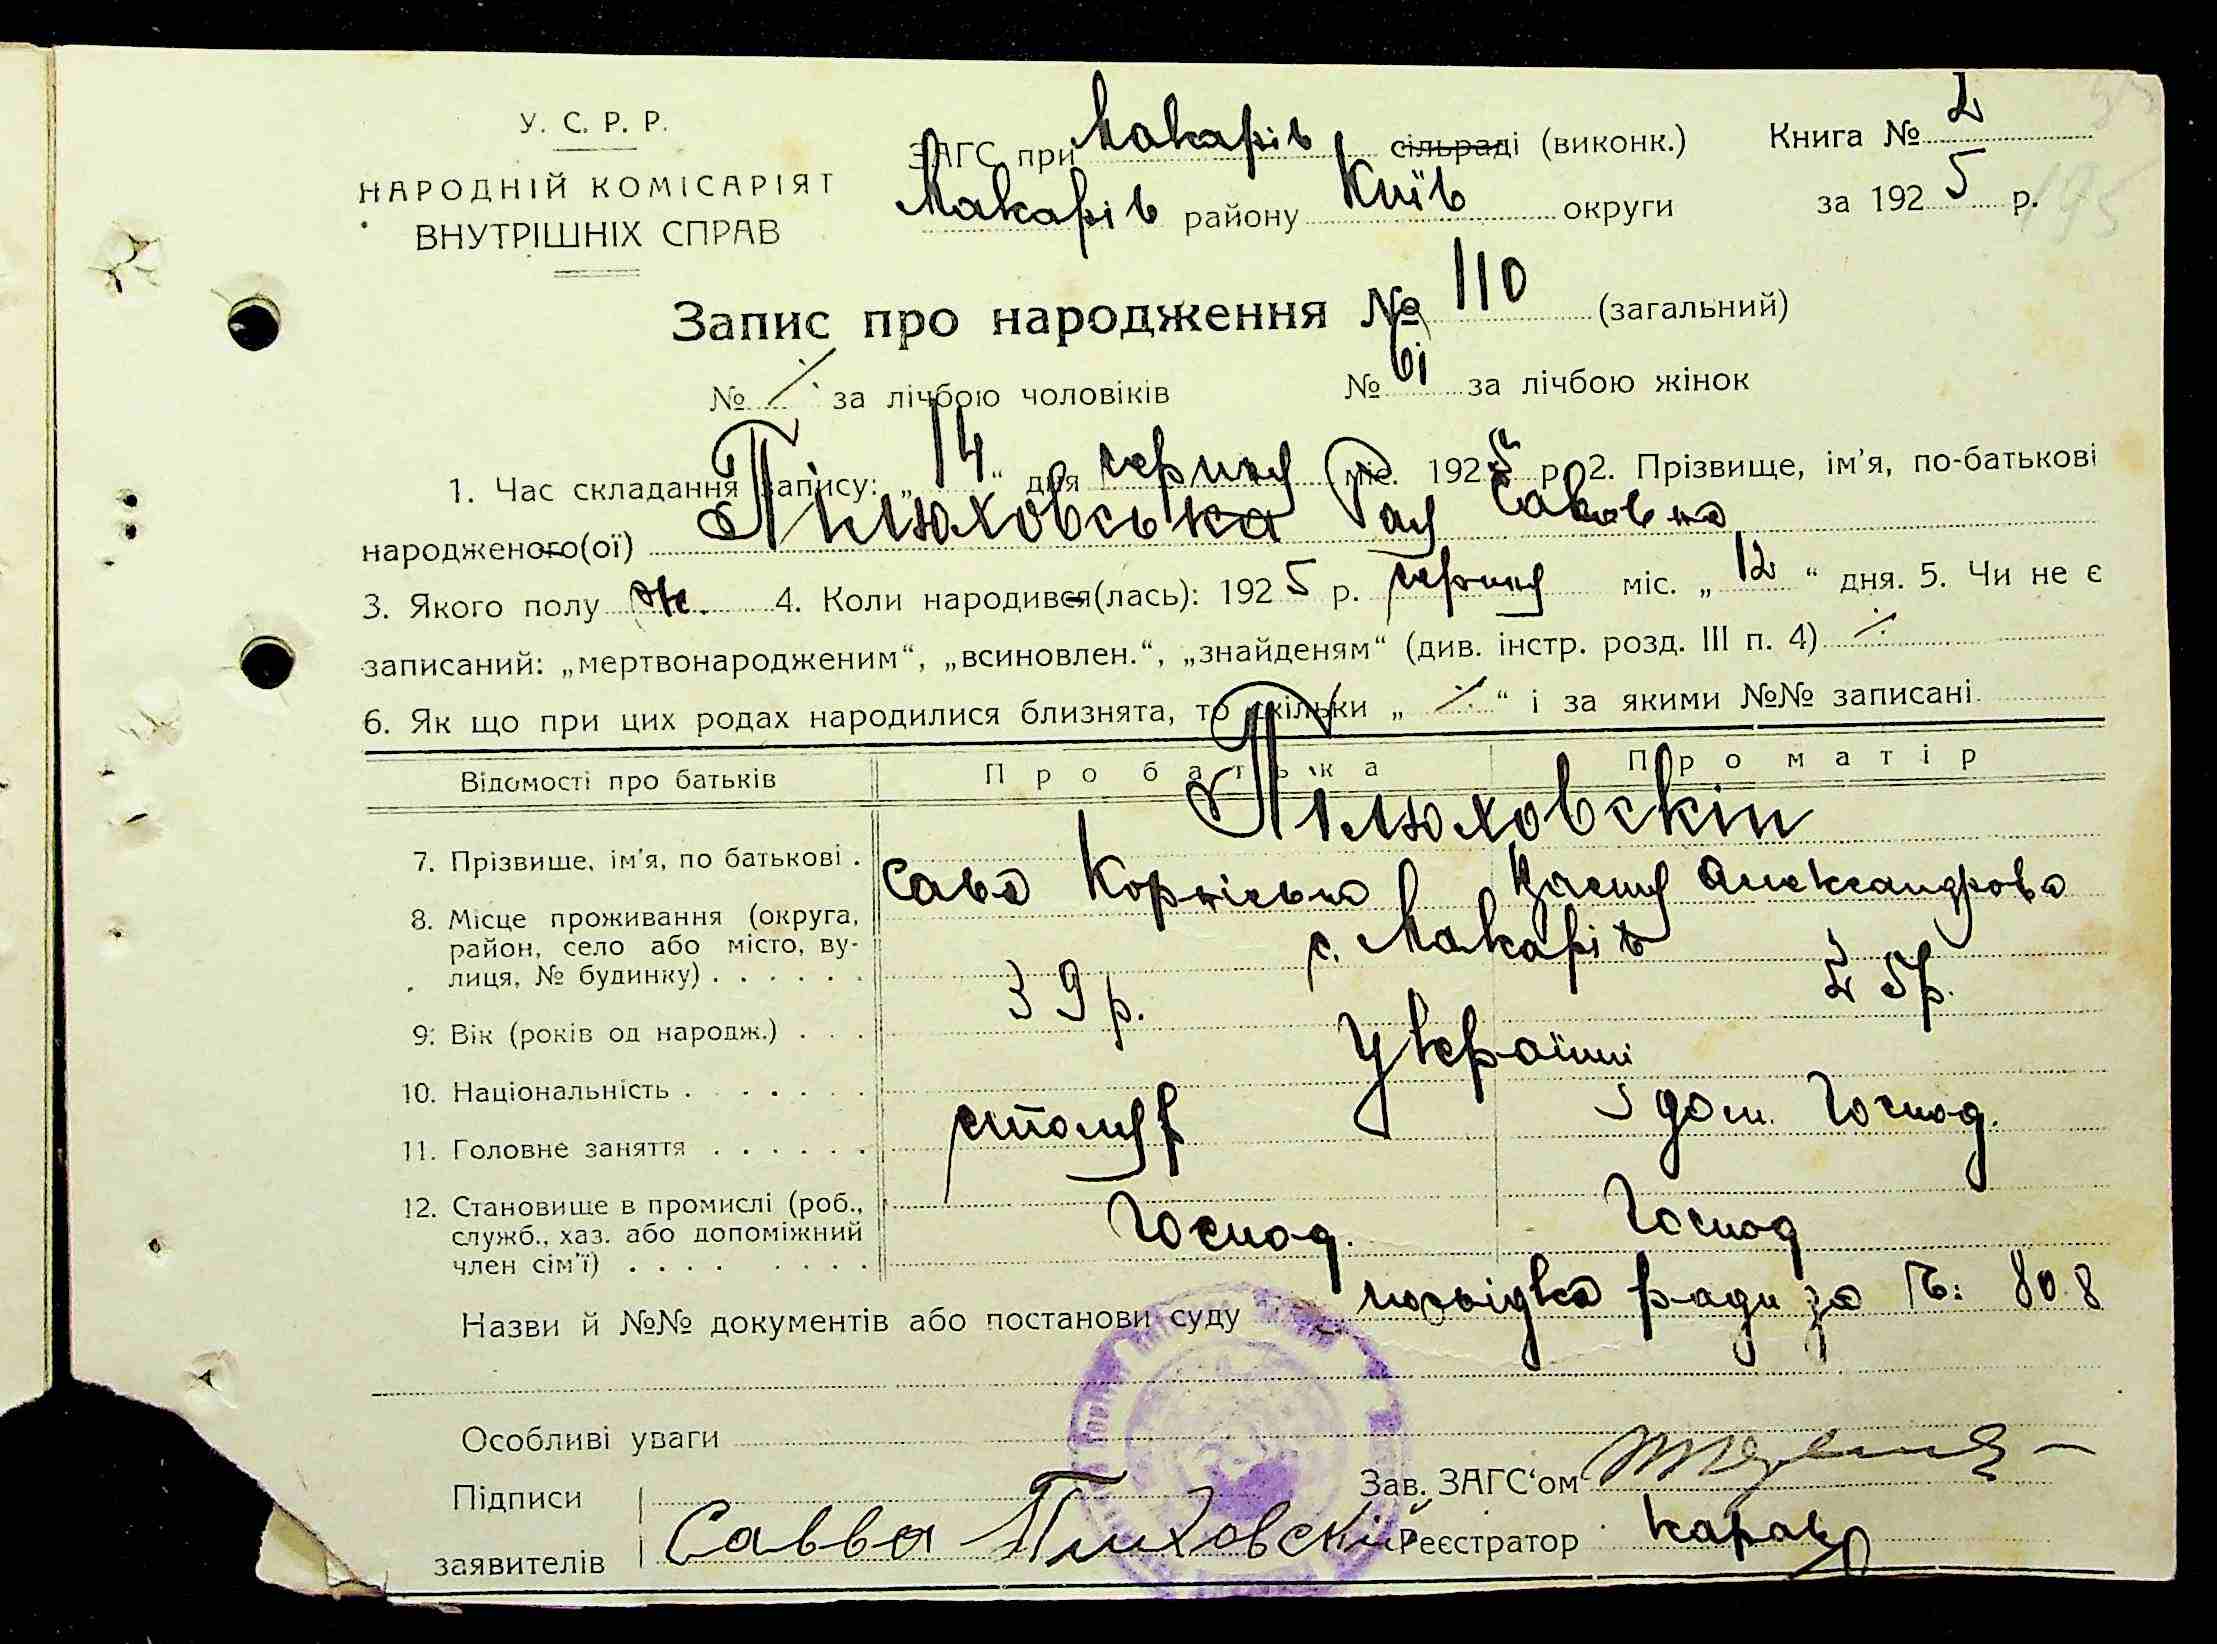 У. С. Р. Р.
НАРОДНІЙ КОМІСАРІЯТ
ВНУТРІШНІХ СПРАВ
ЗАГС при Макарів сільраді (виконк.) Книга № 2
Макарів району Київ округи за 1925 р.
195
Запис про народження № 110 (загальний)
№ ⁒ за лічбою чоловіків № 61 за лічбою жінок
1. Час складання запису: „14“ дня червня міс. 1925 р. 2. Прізвище, ім'я, по-батькові
народженого(ої) Пілюховська Рая Савовна
3. Якого полу ж. 4. Коли народився(лась): 1925 р. червня міс. „12“ дня. 5. Чи не є
записаний: „мертвонародженим“, „всиновлен.“, „знайденям“ (див. інстр. розд. III п. 4) ⁒
6. Як що при цих родах народилися близнята, то скільки „⁒“ і за якими №№ записані
Відомості про батьків Про батька Про матір
Пілюховскіи
7. Прізвище, ім'я, по батькові . Сава Корнієва Насця Александрова
8. Місце проживання (округа,
район, село або місто, ву-
лиця, № будинку) . . . . . . с. Макарів
9. Вік (років од народж.) . . . 39 р. 25 р.
10. Національність . . . . . . Україінці
11. Головне заняття . . . . . . столяр дом. Господ.
12. Становище в промислі (роб.,
служб., хаз. або допоміжний
член сім'ї) . . . . . . . . Господ. Господ
Назви й №№ документів або постанови суду посвідка ради за №: 808
Особливі уваги
Підписи
заявителів Савва Пилховскій
Зав. ЗАГС'ом
Реєстратор